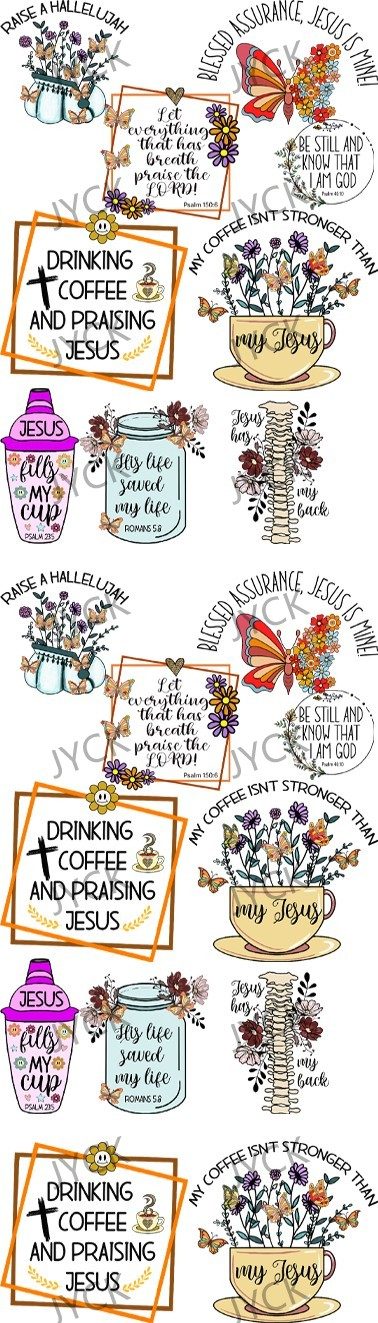 RAISE A HALLELUJAH
BLESSED ASSURANCE, JESUS IS MINE!
Let
everything
that has
breath
praise the
LORD!
Psalm 150:6
BE STILL AND
KNOW THAT
I AM GOD
JYCK
JYCK
JYCK
DRINKING
COFFEE
AND PRAISING
JESUS
JYCK
MY COFFEE ISN'T STRONGER THAN
my Jesus
JYCK
JYCK
JESUS
fills
MY
CUP
PSALM 23:5
JYCK
His life
saved
my life
ROMANS 5:8
JYCK
Jesus
has
my
back
JYCK
RAISE A HALLELUJAH
BLESSED ASSURANCE, JESUS IS MINE!
Let
everything
that has
breath
praise the
LORD!
Psalm 150:6
BE STILL AND
KNOW THAT
I AM GOD
JYCK
JYCK
JYCK
DRINKING
COFFEE
AND PRAISING
JESUS
JYCK
MY COFFEE ISN'T STRONGER THAN
my Jesus
JYCK
JYCK
JESUS
fills
MY
CUP
PSALM 23:5
JYCK
His life
saved
my life
ROMANS 5:8
JYCK
Jesus
has
my
back
JYCK
DRINKING
COFFEE
AND PRAISING
JESUS
JYCK
MY COFFEE ISN'T STRONGER THAN
my Jesus
JYCK
JYCK